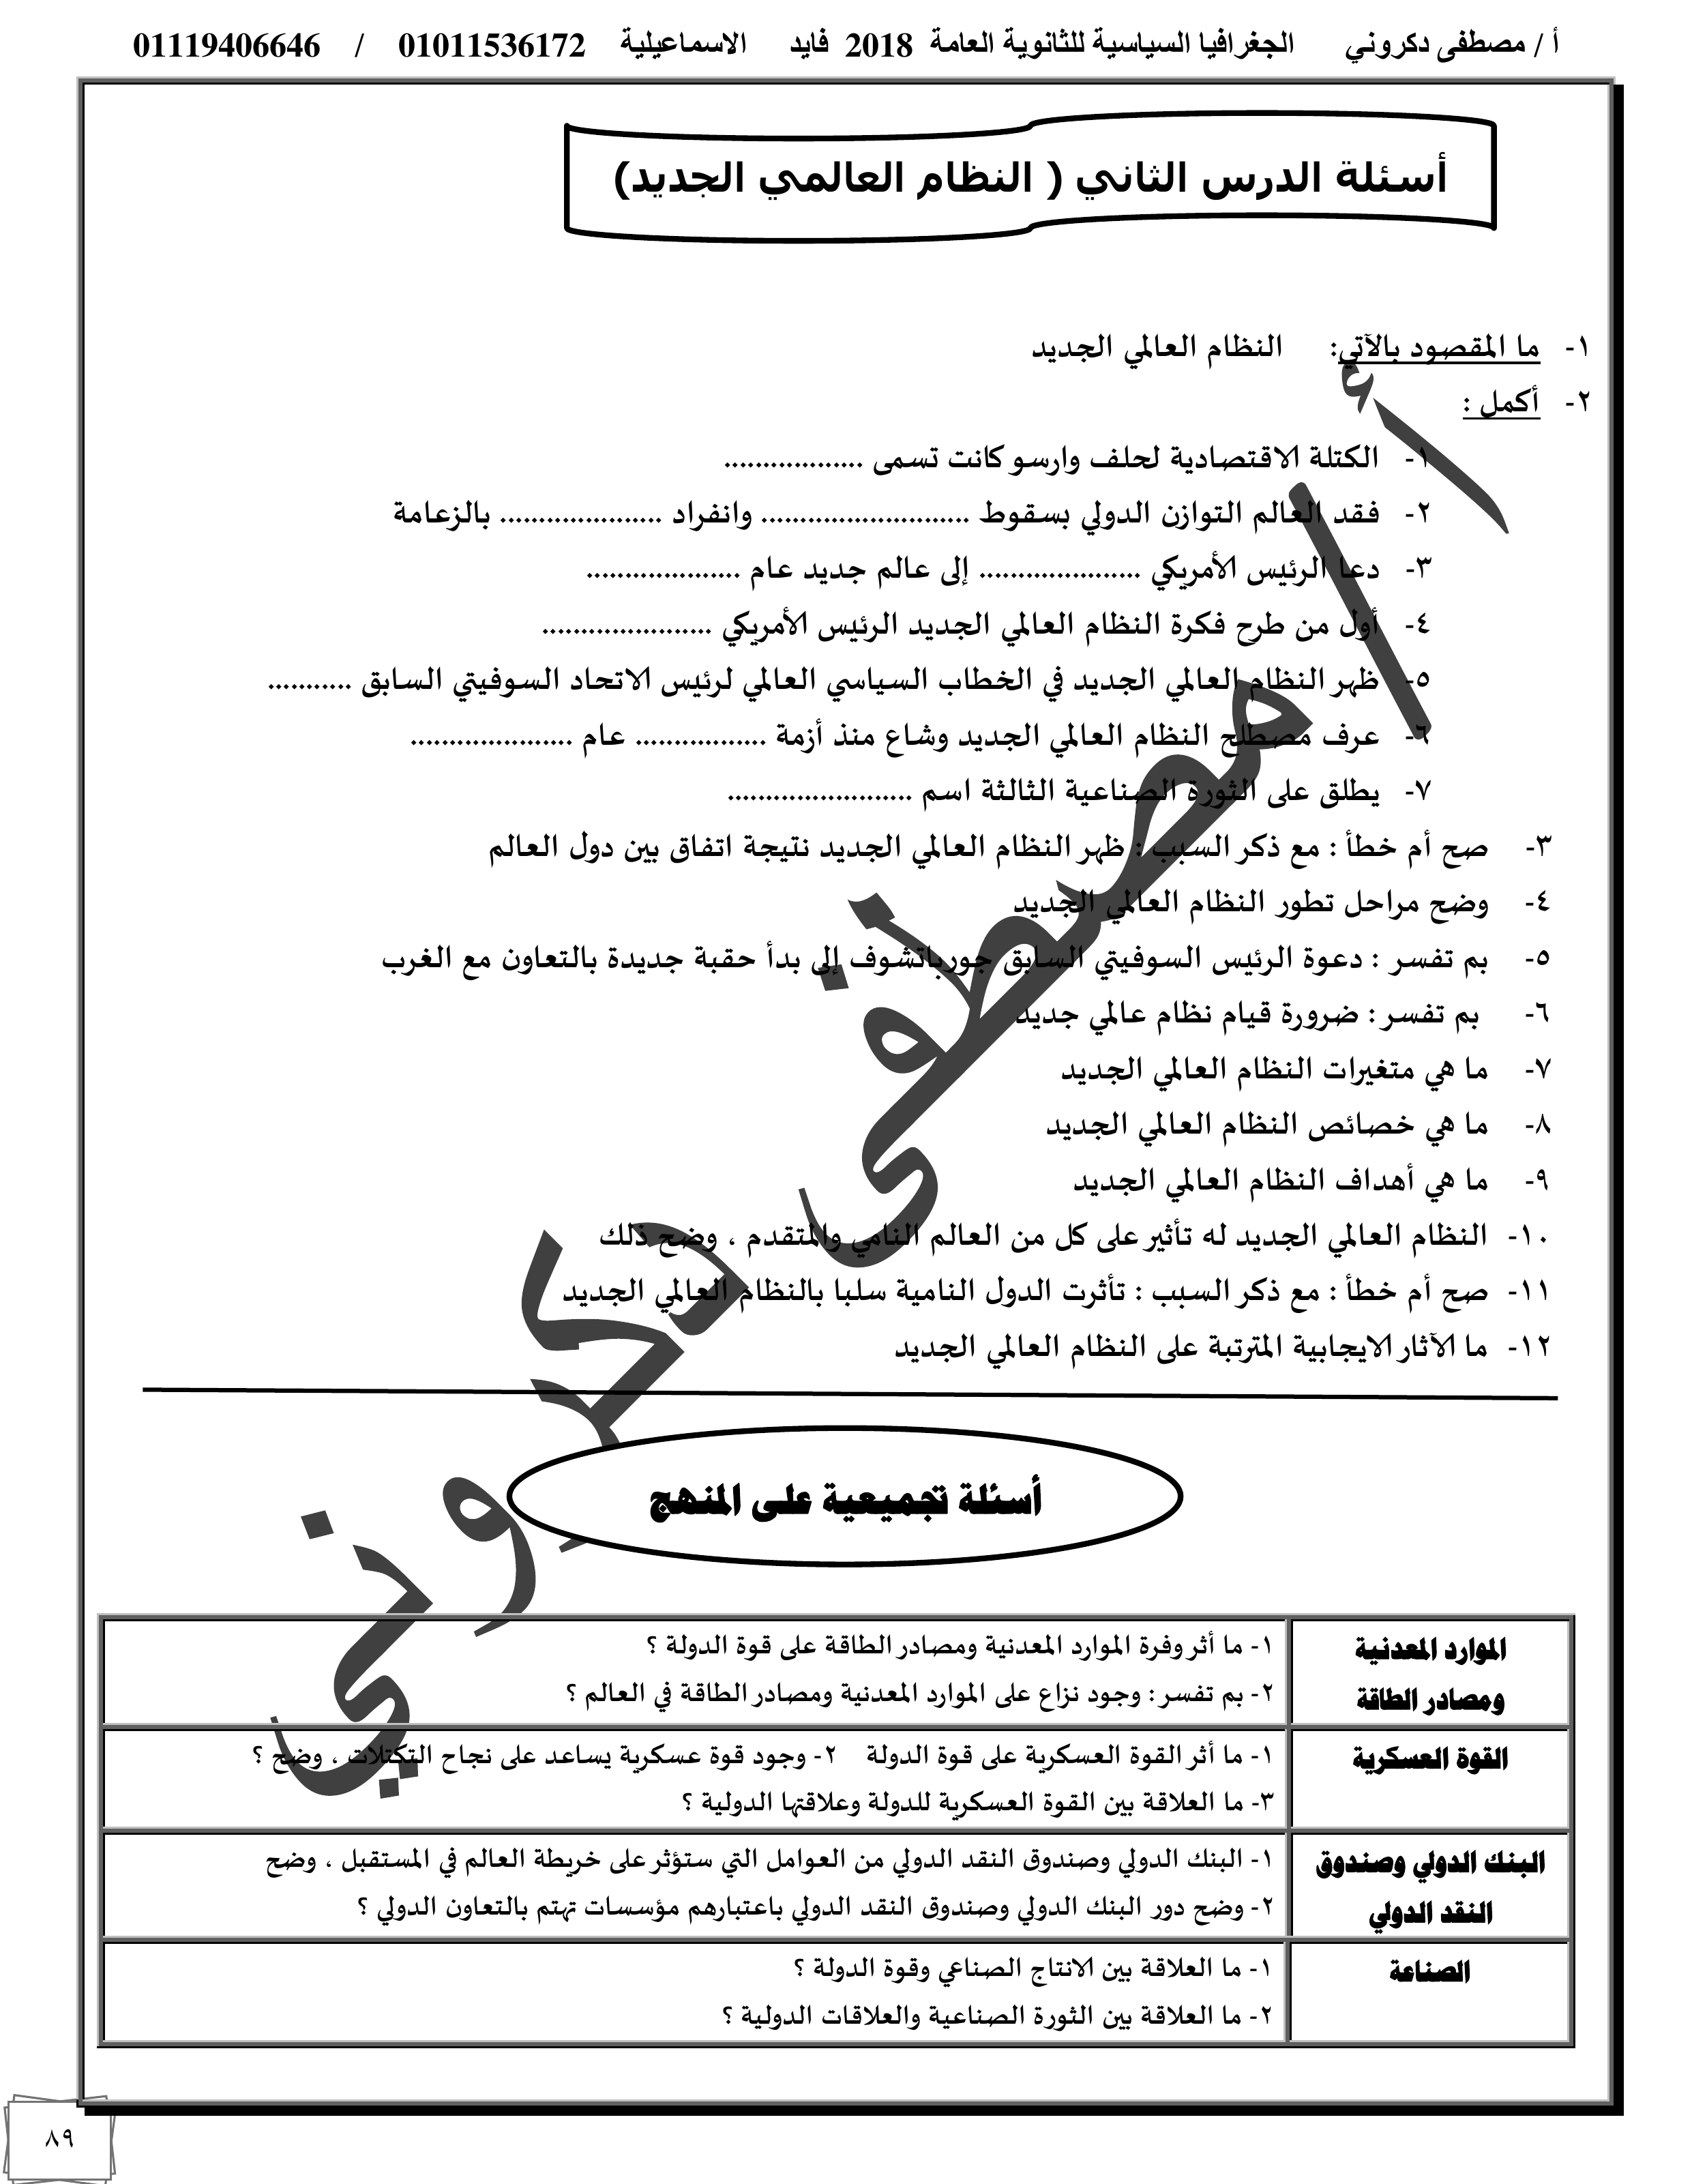 أ / مصطفى دكروني الجغرافيا السياسية للثانوية العامة 2018 فايد الاسماعيلية 01011536172 / 01119406646
أسئلة الدرس الثاني ( النظام العالمي الجديد)
١- ما المقصود بالآتي: النظام العالمي الجديد
٢- أكمل :
١- الكتلة الاقتصادية لحلف وارسو كانت تسمى ..................
٢- فقد العالم التوازن الدولي بسقوط ........................... وانفراد ..................... بالزعامة
٣- دعا الرئيس الأمريكي ..................... إلى عالم جديد عام ....................
٤- أول من طرح فكرة النظام العالمي الجديد الرئيس الأمريكي ......................
٥- ظهر النظام العالمي الجديد في الخطاب السياسي العالمي لرئيس الاتحاد السوفيتي السابق ...........
٦- عرف مصطلح النظام العالمي الجديد وشاع منذ أزمة ................. عام .....................
٧- يطلق على الثورة الصناعية الثالثة اسم ........................
٣- صح أم خطأ : مع ذكر السبب : ظهر النظام العالمي الجديد نتيجة اتفاق بين دول العالم
٤- وضح مراحل تطور النظام العالمي الجديد
٥- بم تفسر : دعوة الرئيس السوفيتي السابق جورباتشوف إلى بدأ حقبة جديدة بالتعاون مع الغرب
٦- بم تفسر : ضرورة قيام نظام عالمي جديد
٧- ما هي متغيرات النظام العالمي الجديد
٨- ما هي خصائص النظام العالمي الجديد
٩- ما هي أهداف النظام العالمي الجديد
١٠- النظام العالمي الجديد له تأثير على كل من العالم النامي والمتقدم ، وضح ذلك
١١- صح أم خطأ : مع ذكر السبب : تأثرت الدول النامية سلبا بالنظام العالمي الجديد
١٢- ما الآثار الايجابية المترتبة على النظام العالمي الجديد
أ / مصطفى دكروني
أسئلة تجميعية على المنهج
الموارد المعدنية
ومصادر الطاقة
١- ما أثر وفرة الموارد المعدنية ومصادر الطاقة على قوة الدولة ؟
٢- بم تفسر : وجود نزاع على الموارد المعدنية ومصادر الطاقة في العالم ؟
القوة العسكرية
١- ما أثر القوة العسكرية على قوة الدولة ٢- وجود قوة عسكرية يساعد على نجاح التكتلات ، وضح ؟
٣- ما العلاقة بين القوة العسكرية للدولة وعلاقتها الدولية ؟
البنك الدولي وصندوق
النقد الدولي
١- البنك الدولي وصندوق النقد الدولي من العوامل التي ستؤثر على خريطة العالم في المستقبل ، وضح
٢- وضح دور البنك الدولي وصندوق النقد الدولي باعتبارهم مؤسسات تهتم بالتعاون الدولي ؟
الصناعة
١- ما العلاقة بين الانتاج الصناعي وقوة الدولة ؟
٢- ما العلاقة بين الثورة الصناعية والعلاقات الدولية ؟
٨٩